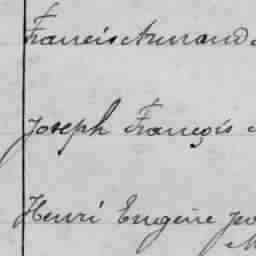 Francis Armand
Joseph François
Henri Eugène